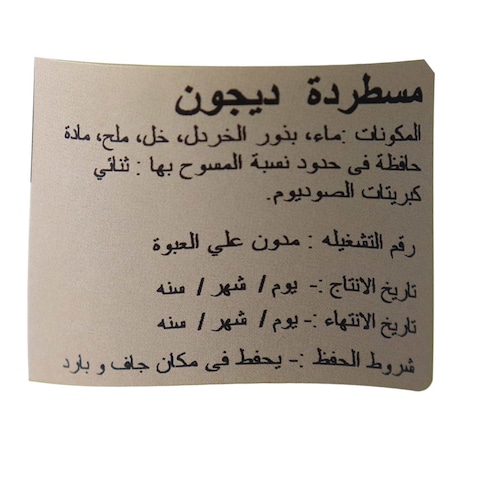 مسطردة ديجون
المكونات :ماء، بذور الخردل، خل، ملح، مادة
حافظة فى حدود نسبة المسوح بها : ثنائي
كبريتات الصوديوم.
رقم التشغيله : مدون علي العبوة
تاريخ الانتاج :- يوم / شهر / سنه
تاريخ الانتهاء :- يوم / شهر / سنه
شروط الحفظ :- يحفط فى مكان جاف و بارد